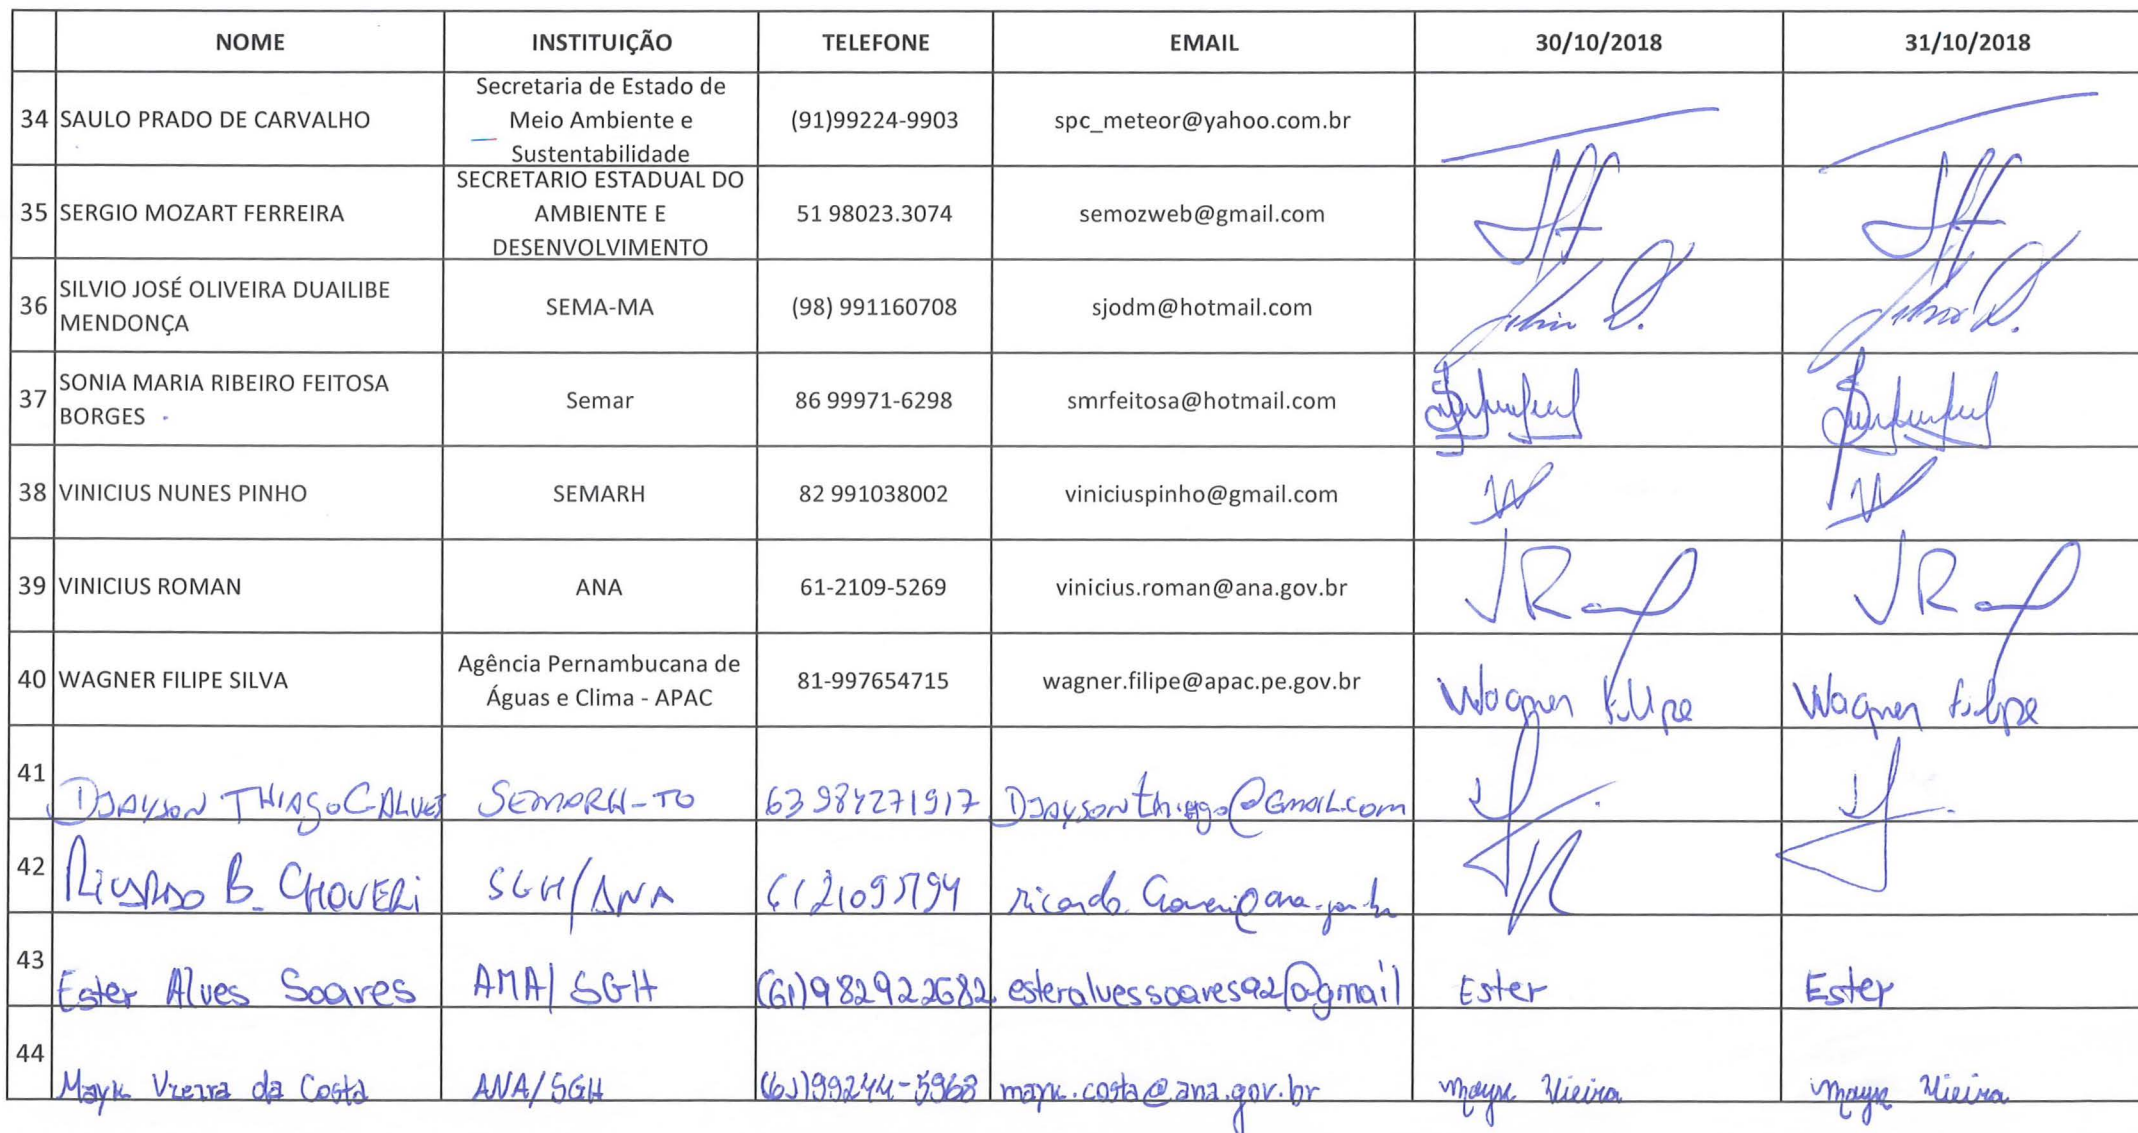 NOME INSTITUIÇÃO TELEFONE EMAIL 30/10/2018 31/10/2018
34 SAULO PRADO DE CARVALHO Secretaria de Estado de Meio Ambiente e Sustentabilidade (91)99224-9903 spc_meteor@yahoo.com.br
35 SERGIO MOZART FERREIRA SECRETARIO ESTADUAL DO AMBIENTE E DESENVOLVIMENTO 51 98023.3074 semozweb@gmail.com
36 SILVIO JOSÉ OLIVEIRA DUAILIBE MENDONÇA SEMA-MA (98) 991160708 sjodm@hotmail.com
37 SONIA MARIA RIBEIRO FEITOSA BORGES Semar 86 99971-6298 smrfeitosa@hotmail.com
38 VINICIUS NUNES PINHO SEMARH 82 991038002 viniciuspinho@gmail.com
39 VINICIUS ROMAN ANA 61-2109-5269 vinicius.roman@ana.gov.br
40 WAGNER FILIPE SILVA Agência Pernambucana de Águas e Clima - APAC 81-997654715 wagner.filipe@apac.pe.gov.br Wagner Filipe Wagner Filipe
41 DJAYSON THIAGO C ALVES SEMARH-TO 63 984271917 DJAYSONthiago@Gmail.com
42 SGH/ANA
43 Ester Alves Soares ANA/SGH (61)982922682 esteralvessoares92@gmail Ester Ester
44 Mayk Vieira da Costa ANA/SGH (61)99244-5968 mayk.costa@ana.gov.br Vieira Vieira